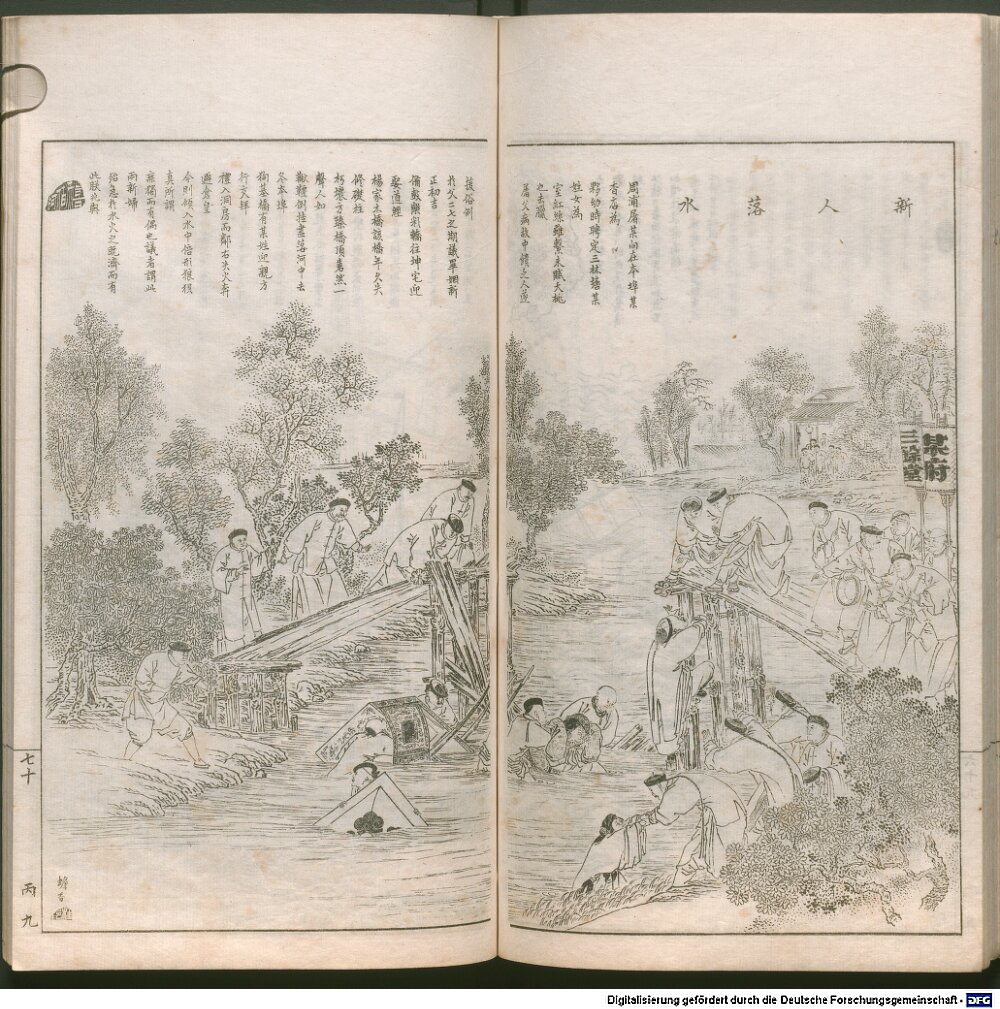 新人落水
周浦屠某向在本埠某
香店為
夥幼時聘定三林塘某
姓女為
室紅絲雖繫未賦夭桃
也去臘
屠父病故中饋乏人遂
援俗例
於父二七之期議畢姻新
正初吉
備鼓樂彩轎往坤宅迎
娶道經
楊家木橋該橋年久失
修礎柱
朽壞方臻橋頂忽然一
聲人如
獸竄倒掛盡落河中去
冬本埠
狗基橋有某姓迎親方
行交拜
禮入洞房而鄰右失火奔
避倉皇
今則傾入水中倍形狼狽
真所謂
無獨而有偶也議者謂此
兩新婦
此朕兆歟
某府
三餘堂
七十
丙
九
Digitalisierung gefördert durch die Deutsche Forschungsgemeinschaft - DFG